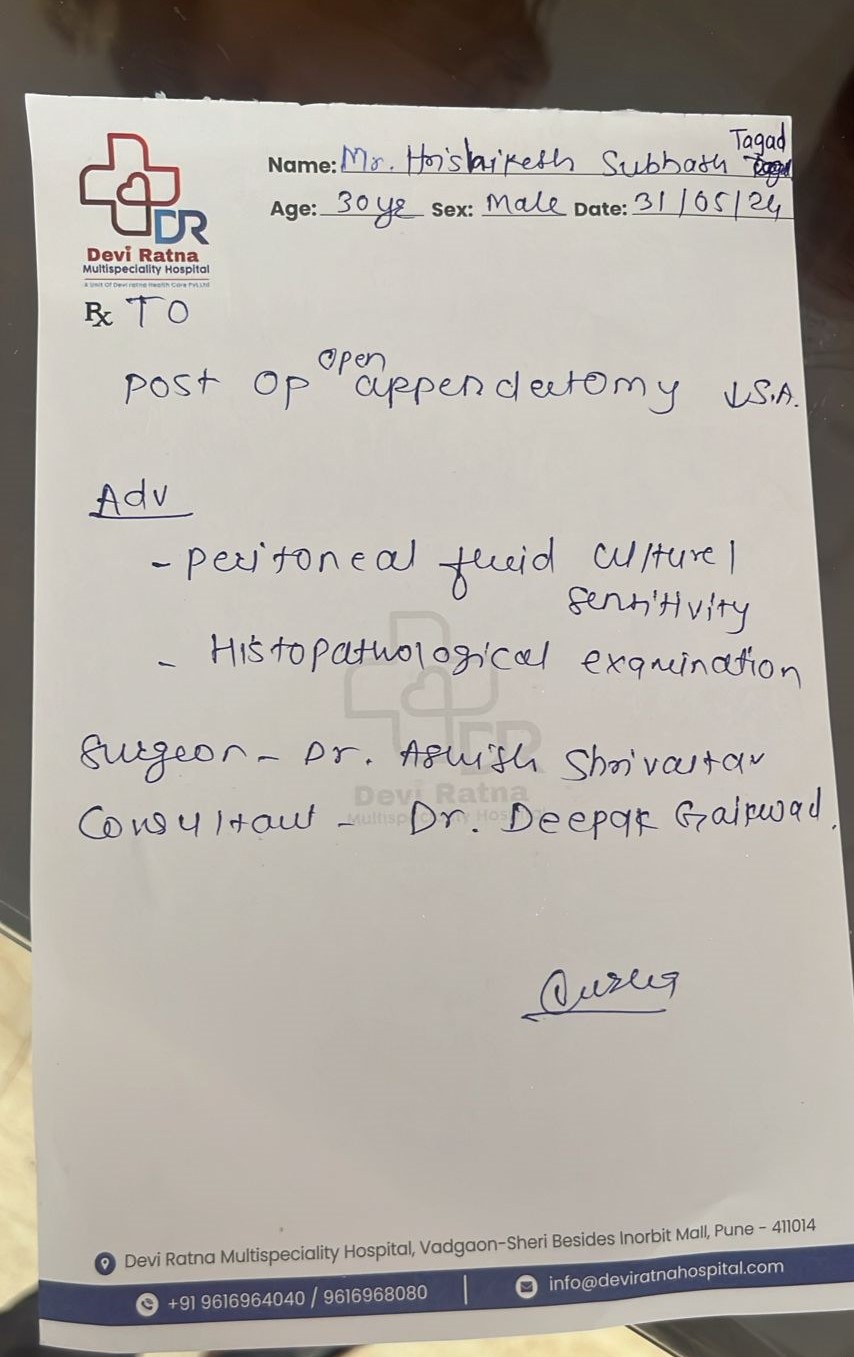 Name: Mr. Hrishikesh Subhash Tagad
Age: 30 yr Sex: Male Date: 31/05/24
DR
Devi Ratna
Multispeciality Hospital
A Unit Of Devi ratna Health Care Pvt.Ltd
Rx TO
post op open appendectomy ↓S.A.
Adv
- peritoneal fluid culture/
sensitivity
- Histopathological examination
Surgeon - Dr. Ashish Shrivastav
Consultant - Dr. Deepak Gaikwad.
DR
Devi Ratna
Multispeciality Hospital
Devi Ratna Multispeciality Hospital, Vadgaon-Sheri Besides Inorbit Mall, Pune - 411014
+91 9616964040 / 9616968080 | info@deviratnahospital.com